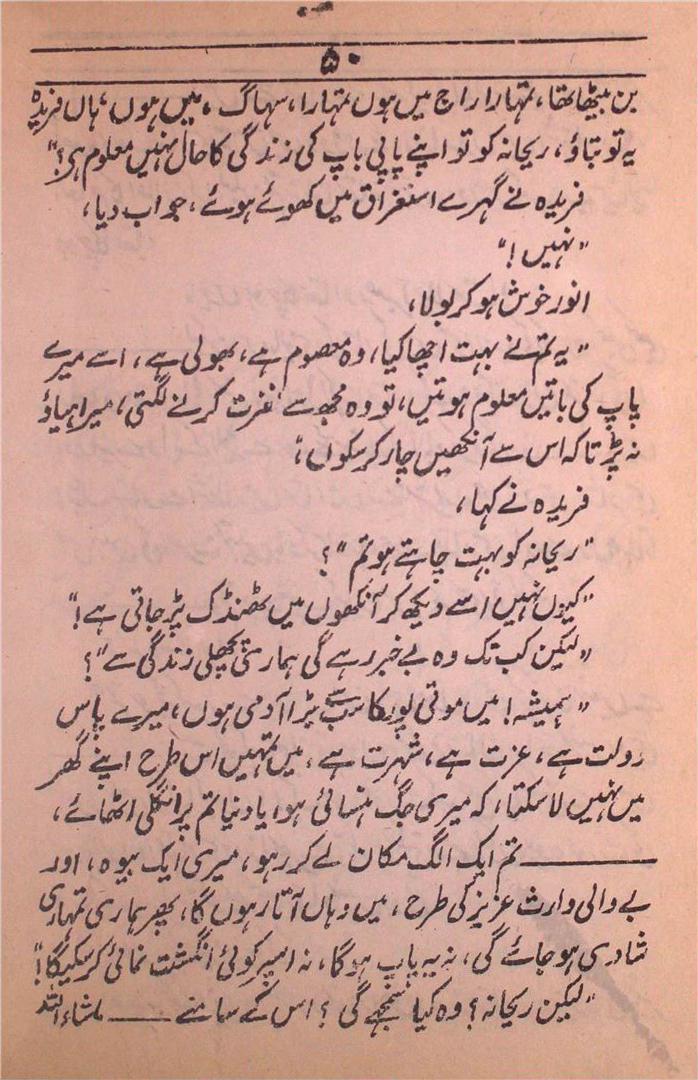 ۵۰
بن بیٹھا تھا، تمہارا راج میں ہوں تمہارا، سہاگ ، میں ہوں، ہاں فریدہ
یہ تو بتاؤ، ریحانہ کو تو اپنے پاپی باپ کی زندگی کا حال نہیں معلوم ہی؟"
فریدہ نے گہرے استغراق میں کھوئے ہوئے، جواب دیا،
"نہیں!"
انور خوش ہو کر بولا،
"یہ تم نے بہت اچھا کیا، وہ معصوم ہے، بھولی ہے، اسے میرے
پاپ کی باتیں معلوم ہوتیں، تو وہ مجھ سے نفرت کرنے لگتی، میرا ہیاؤ
نہ پڑتا کہ اس سے آنکھیں چار کر سکوں،"
فریدہ نے کہا،
"ریحانہ کو بہت چاہتے ہو تم"؟
"کیوں نہیں اسے دیکھ کر آنکھوں میں ٹھنڈک پڑ جاتی ہے!"
"لیکن کب تک وہ بے خبر رہے گی ہماری پچھلی زندگی سے"؟
"ہمیشہ! میں موتی پور کا سب سے بڑا آدمی ہوں، میرے پاس
دولت ہے، عزت ہے، شہرت ہے، میں تمہیں اس طرح اپنے گھر
میں نہیں لا سکتا، کہ میری جگ ہنسائی ہو، یا دنیا تم پر انگلی اٹھائے،
ــــــــ تم ایک الگ مکان لے کر رہو، میری ایک بیوہ، اور
بے والی وارث عزیز کی طرح، میں وہاں آتا رہوں گا، پھر ہماری تمہاری
شادی ہو جائے گی، نہ یہ پاپ ہوگا، نہ اسپر کوئی انگشت نمائی کر سکیگا!"
"لیکن ریحانہ؟ وہ کیا سمجھے گی؟ اس کے سامنے ــــــ ماشاء اللہ